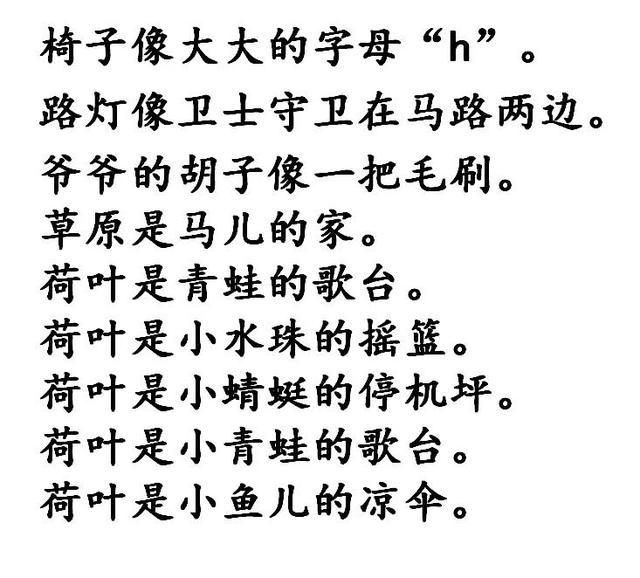 椅子像大大的字母“h”。
路灯像卫士守卫在马路两边。
爷爷的胡子像一把毛刷。
草原是马儿的家。
荷叶是青蛙的歌台。
荷叶是小水珠的摇篮。
荷叶是小蜻蜓的停机坪。
荷叶是小青蛙的歌台。
荷叶是小鱼儿的凉伞。